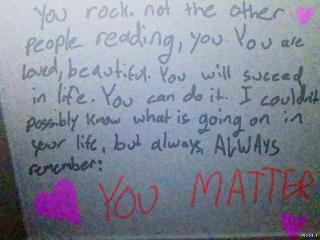 You rock, not the other
people reading, you. You are
loved, beautiful. You will succeed
in life. You can do it. I couldn't
possibly know what is going on in
your life, but always, ALWAYS
remember:
YOU MATTER